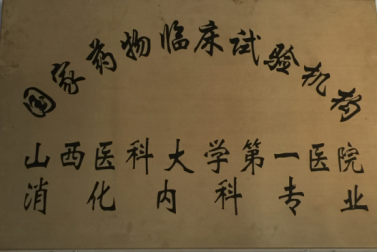 国家药物临床试验机构
山西医科大学第一医院
消化内科专业